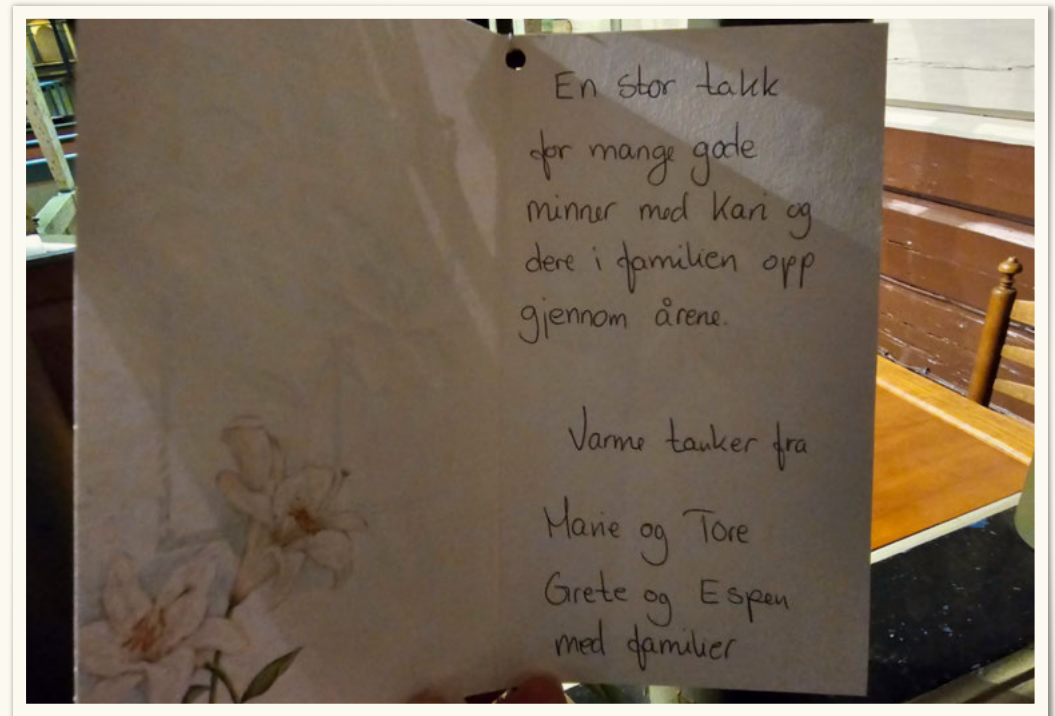 En stor takk
for mange gode
minner med Kari og
dere i familien opp
gjennom årene.
Varme tanker fra
Marie og Tore
Grete og Espen
med familier